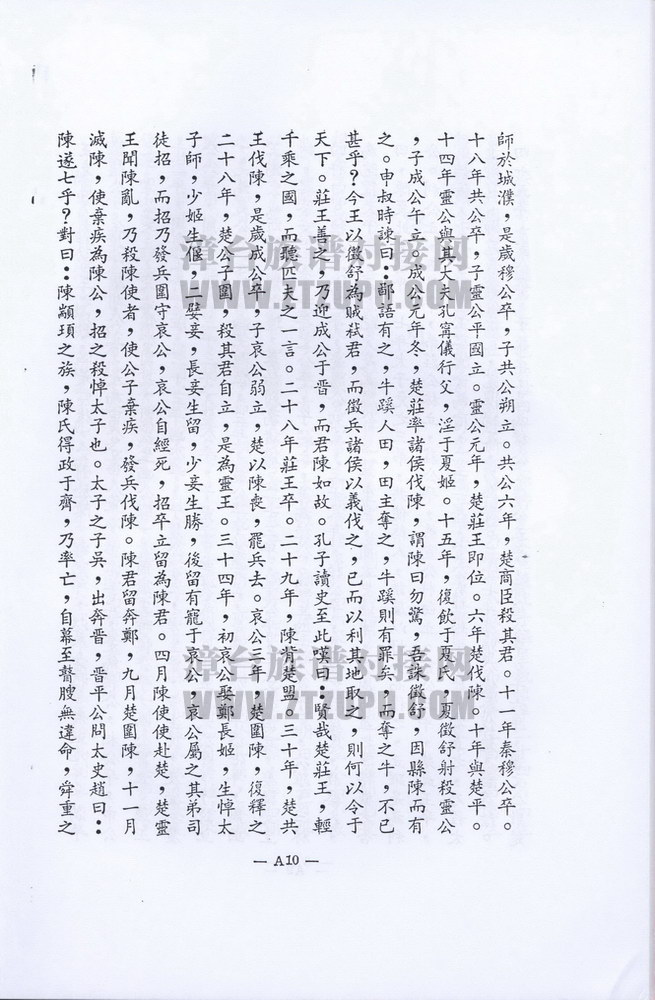 師於城濮，是歲穆公卒，子共公朔立。共公六年，楚商臣殺其君。十一年秦穆公卒。
十八年共公卒，子靈公平國立。靈公元年，楚莊王即位。六年楚伐陳。十年與楚平。
十四年靈公與其大夫孔寗儀行父，淫于夏姬。十五年，復飲于夏氏，夏徵舒射殺靈公
，子成公午立。成公元年冬，楚莊率諸侯伐陳，謂陳曰勿驚，吾誅徵舒，因縣陳而有
之。申叔時諫曰：鄙語有之，牛蹊人田，田主奪之，牛蹊則有罪矣，而奪之牛，不已
甚乎？今王以徵舒為賊弒君，而徵兵諸侯以義伐之，已而以利其地取之，則何以令于
天下。莊王善之，乃迎成公于晋，而君陳如故。孔子讀史至此嘆曰：賢哉楚莊王，輕
千乘之國，而聽匹夫之一言。二十八年莊王卒。二十九年，陳背楚盟。三十年，楚共
王伐陳，是歲成公卒，子哀公弱立，楚以陳喪，罷兵去。哀公三年，楚圍陳，復釋之
二十八年，楚公子圍，殺其君自立，是為靈王。三十四年，初哀公娶鄭長姬，生悼太
子師，少姬生偃，二嬖妾，長妾生留，少妾生勝，後留有寵于哀公，哀公屬之其弟司
徒招，而招乃發兵圍守哀公，哀公自經死，招卒立留為陳君。四月陳使使赴楚，楚靈
王聞陳亂，乃殺陳使者，使公子棄疾，發兵伐陳。陳君留奔鄭，九月楚圍陳，十一月
滅陳，使棄疾為陳公，招之殺悼太子也。太子之子吳，出奔晋，晋平公問太史趙曰：
陳遂亡乎？對曰：陳顓頊之族，陳氏得政于齊，乃率亡，自幕至瞽瞍無違命，舜重之
— A10 —
漳台族谱对接网
WWW.ZTZUPU.COM
漳台族谱对接网
WWW.ZTZUPU.COM